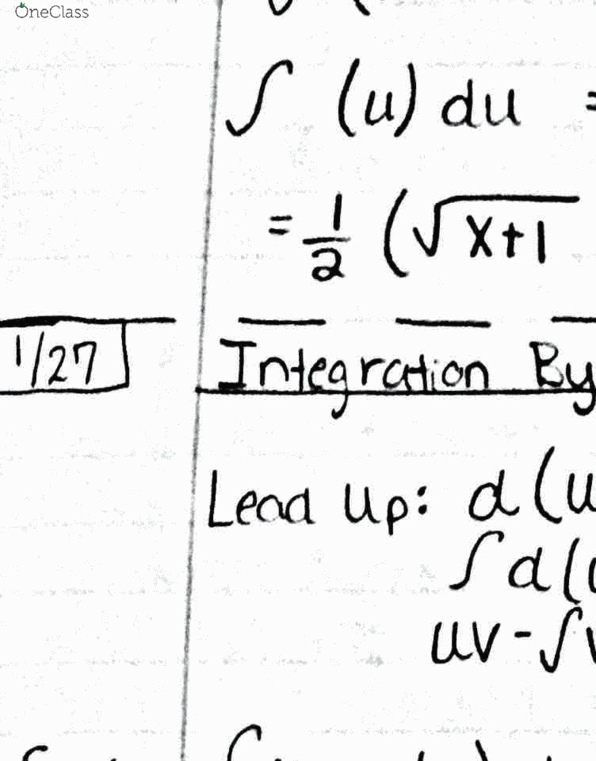 OneClass
∫ (u) du =
= 1/2 (√x+1
1/27 Integration By
Lead Up: d(u
∫d(
uv-∫v